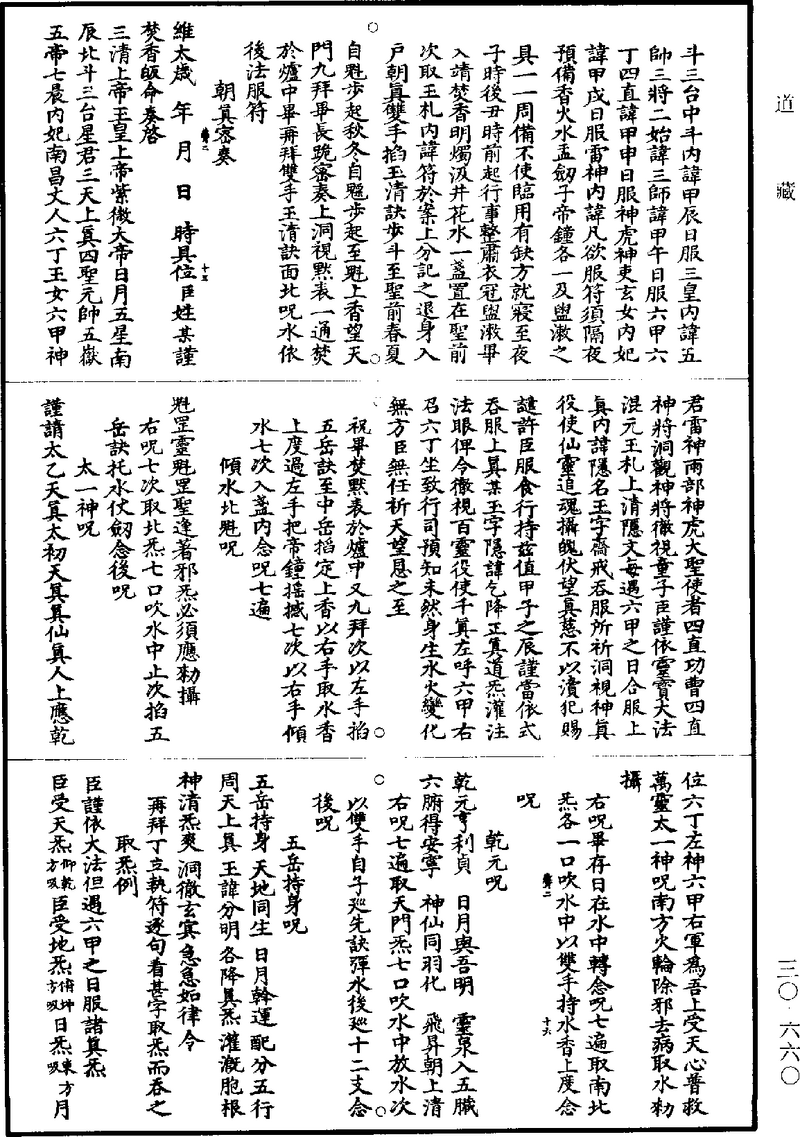 道藏
三〇·六六〇
斗三台中斗內諱甲辰日服三皇內諱五
帥三將二始諱三師諱甲午日服六甲六
丁四直諱甲申日服神虎神吏玄女內妃
諱甲戌日服雷神內諱凡欲服符須隔夜
預備香火水盂劒子帝鐘各一及盥漱之
具一一周備不使臨用有缺方就寢至夜
子時後丑時前起行事整肅衣冠盥漱畢
入靖焚香明燭汲井花水一盞置在聖前
次取玉札內諱符於案上分記之退身入
戶朝真雙手掐玉清訣步斗至聖前春夏
自魁步起秋冬自䰢步起至魁上香望天
門九拜畢長跪密奏上洞視默表一通焚
於爐中畢再拜雙手玉清訣面北呪水依
後法服符
朝真密奏
維太歲 年 月 日 時具位臣姓某謹
焚香皈命奏啓
三清上帝玉皇上帝紫微大帝日月五星南
辰北斗三台星君三天上真四聖元帥五嶽
五帝七晨內妃南昌丈人六丁玉女六甲神
君雷神兩部神虎大聖使者四直功曹四直
神將洞觀神將徹視童子臣謹依靈寶大法
混元玉札上清隱文每遇六甲之日合服上
真內諱隱名玉字齋戒吞服所祈洞視神真
役使仙靈追魂攝魄伏望真慈不以瀆犯賜
譴許臣服食行持茲值甲子之辰謹當依式
吞服上真某玉字隱諱乞降正真道炁灌注
法眼俾令徹視百靈役使千真左呼六甲右
召六丁坐致行司預知未然身生水火變化
無方臣無任祈天望恩之至
祝畢焚默表於爐中又九拜次以左手掐
五岳訣至中岳掐定上香以右手取水香
上度過左手把帝鐘搖撼七次以右手傾
水七次入盞內念呪七遍
傾水北魁呪
魁罡靈魁罡聖逢著邪炁必須應勑攝
右呪七次取北炁七口吹水中止次掐五
岳訣托水仗劒念後呪
太一神呪
謹請太乙天真太初天真真仙真人上應乾
位六丁左神六甲右軍為吾上受天心普救
萬靈太一神呪南方火輪除邪去病取水勑
攝
右呪畢存日在水中轉念呪七遍取南北
炁各一口吹水中以雙手持水香上度念
呪
乾元呪
乾元亨利貞 日月與吾明 靈泉入五臟
六腑得安寧 神仙同羽化 飛昇朝上清
右呪七遍取天門炁七口吹水中放水次
以雙手自子巡先訣彈水後巡十二支念
後呪
五岳持身呪
五岳持身 天地同生 日月斡運 配分五行
周天上真 玉諱分明 各降真炁 灌溉胞根
神清炁爽 洞徹玄冥 急急如律令
再拜丁立執符逐句看甚字取炁而吞之
取炁例
臣謹依大法但遇六甲之日服諸真炁
臣受天炁仰乾方吸臣受地炁俯坤方吸日炁東方吸月